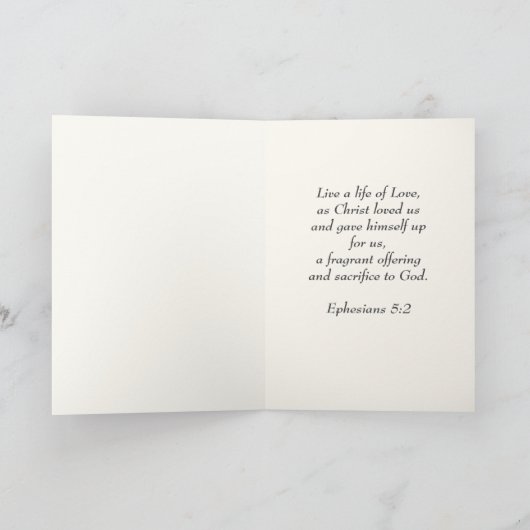 Live a life of Love,
as Christ loved us
and gave himself up
for us,
a fragrant offering
and sacrifice to God.
Ephesians 5:2